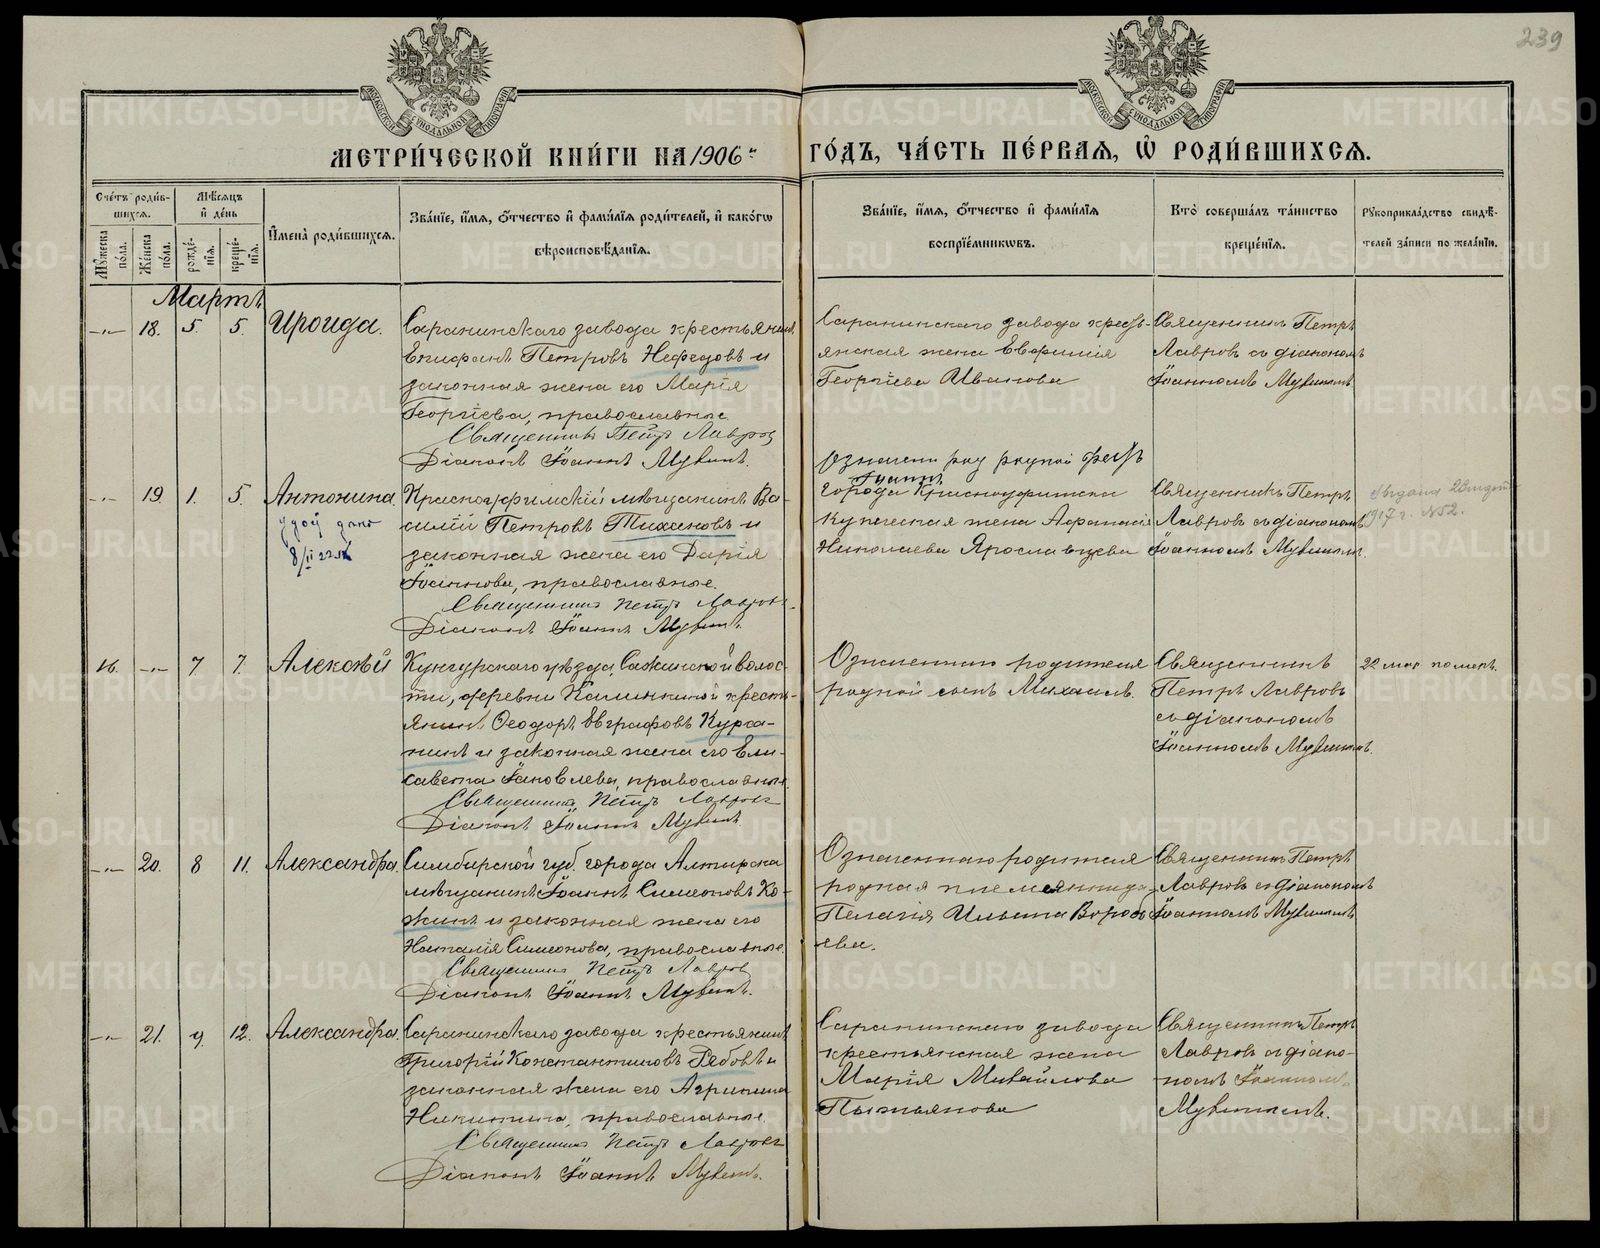 239
МОСКОВСКОЙ СѴНОДАЛЬНОЙ ТИПОГРАФІИ
МОСКОВСКОЙ СѴНОДАЛЬНОЙ ТИПОГРАФІИ
МЕТРИ́ЧЕСКОЙ КНИ́ГИ НА 1906й
ГО́ДЪ, ЧА́СТЬ ПЕ́РВАЯ, Ѡ҆ РОДИ́ВШИХСЯ.
Сче́тъ роди́в-
шихся.
Мꙋ́жеска по́ла.
Же́нска по́ла.
Мѣ́сяцъ
и҆ де́нь
рожде́-
нїя.
креще́-
нїя.
И҆мена̀ роди́вшихся.
Зва́нїе, и҆́мя, ѻ҆́тчество и҆ фами́лїя роди́телей, и҆ како́гѡ
вѣроисповѣ́данїя.
Зва́нїе, и҆́мя, ѻ҆́тчество и҆ фами́лїя
воспрїе́мниковъ.
Кто̀ соверша́лъ та́инство
креще́нїя.
Рꙋкоприкла́дство свидѣ́-
телей за́писи по жела́нїю.
Мартъ
-„- 18. 5. 5. Ираида.
Саранинскаго завода крестьянинъ
Епифанъ Петровъ Нефедовъ и
законная жена его Марія
Георгіева, православные
Священникъ Петръ Лавровъ
Діаконъ Іоаннъ
Саранинскаго завода кресть-
янская жена Евфимія
Георгіева Иванова
Священникъ Петръ
Лавровъ съ діакономъ
Іоанномъ
-„- 19. 1. 5. Антонина.
Красноуфимскій мѣщанинъ Ва-
силій Петровъ Тихановъ и
законная жена его Дарія
Іоаннова, православные.
Священникъ Петръ Лавровъ
Діаконъ Іоаннъ
города Красноуфимска
купеческая жена Афанасія
Николаева Ярославцева
Священникъ Петръ
Лавровъ съ діакономъ
Іоанномъ
1917 г. №52.
16. -„- 7 7. Алексѣй
Кунгурскаго уѣзда, Сажинской волос-
ти, деревни Калинкиной кресть-
янинъ Ѳеодоръ Евграфовъ Курга-
нинъ и законная жена его Ели-
савета Іаковлева, православные
Священникъ Петръ Лавровъ
Діаконъ Іоаннъ
Означеннаго родителя
родной сынъ Михаилъ.
Священникъ
Петръ Лавровъ
съ діакономъ
Іоанномъ
22 мая померъ.
-„- 20. 8 11. Александра.
Симбирской губ. города Алатырска
мѣщанинъ Іоаннъ Симеоновъ Ко-
жинъ и законная жена его
Наталія Симеонова, православные.
Священникъ Петръ Лавровъ
Діаконъ Іоаннъ
Означеннаго родителя
родная племянница
Пелагія Ильина Вороб
ева.
Священникъ Петръ
Лавровъ съ діакономъ
Іоанномъ
-„- 21. 9. 12. Александра.
Саранинскаго завода крестьянинъ
Григорій Константиновъ Рябовъ и
законная жена его Агрипина
Никитина, православные
Священникъ Петръ Лавровъ
Діаконъ Іоаннъ
Саранинскаго завода
крестьянская жена
Марія Михайлова
Пытьянова
Священникъ Петръ
Лавровъ съ діако-
номъ Іоанномъ
METRIKI.GASO-URAL.RU